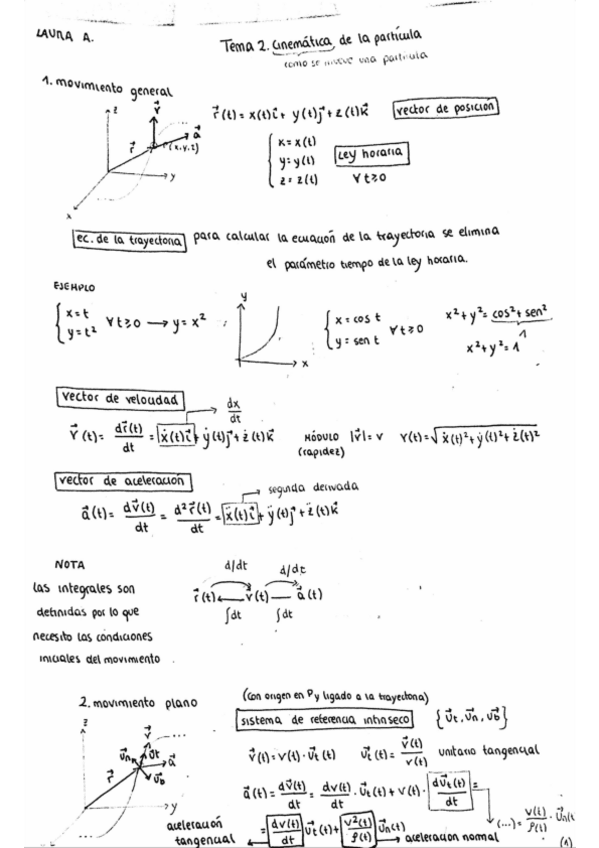 LAURA A.
Tema 2. Cinemática de la partícula
como se mueve una partícula
1. movimiento general
z
v⃗
a⃗
r⃗
P(x,y,z)
y
x
r⃗(t) = x(t)i⃗ + y(t)j⃗ + z(t)k⃗
vector de posición
x = x(t)
y = y(t)
z = z(t)
Ley horaria
∀t≥0
ec. de la trayectoria para calcular la ecuación de la trayectoria se elimina
el parámetro tiempo de la ley horaria.
EJEMPLO
x = t
y = t²
∀t≥0 → y = x²
y
x
x = cos t
y = sen t
∀t≥0
x² + y² = cos² + sen²
1
x² + y² = 1
vector de velocidad
dx/dt
v⃗(t) = dr⃗(t)/dt = ẋ(t)i⃗ + ẏ(t)j⃗ + ż(t)k⃗
MÓDULO |v⃗| = v
(rapidez)
v(t) = √ẋ(t)² + ẏ(t)² + ż(t)²
vector de aceleración
segunda derivada
a⃗(t) = dv⃗(t)/dt = d²r⃗(t)/dt = ẍ(t)i⃗ + ÿ(t)j⃗ + z̈(t)k⃗
NOTA
las integrales son
definidas por lo que
necesito las condiciones
iniciales del movimiento
d/dt d/dt
r⃗(t) v⃗(t) a⃗(t)
∫dt ∫dt
2. movimiento plano
(con origen en P y ligado a la trayectoria)
sistema de referencia intínseco
{u⃗t, u⃗n, u⃗b}
z
v⃗
u⃗n
u⃗t
a⃗
u⃗b
r⃗
y
v⃗(t) = v(t) · u⃗t(t)
u⃗t(t) = v⃗(t)/v(t) unitario tangencial
a⃗(t) = dv⃗(t)/dt = dv(t)/dt · u⃗t(t) + v(t) · du⃗t(t)/dt =
(...) = v(t)/ρ(t) · u⃗n(t)
(1)
= dv(t)/dt u⃗t(t) + v²(t)/ρ(t) u⃗n(t)
aceleración
tangencial
aceleración normal